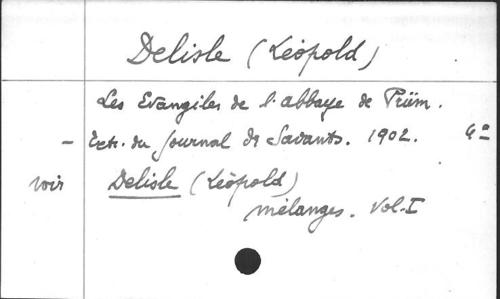 Delisle (Léopold)
Les Evangiles de l'abbaye de Prüm.
- Extr. du Journal des Savants. 1902. 4°
voir Delisle (Léopold)
mélanges. Vol. I